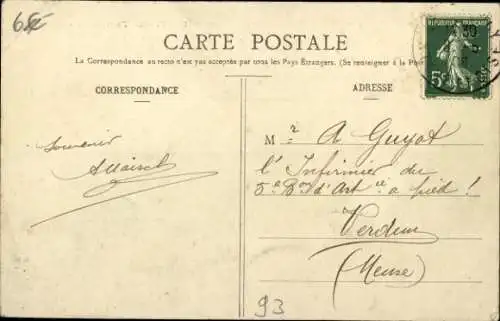 65
CARTE POSTALE
La Correspondance au recto n'est pas acceptée par tous les Pays Étrangers. (Se renseigner à la Poste
CORRESPONDANCE
ADRESSE
RÉPUBLIQUE FRANÇAISE
5c
30
Souvenir
Mr A Guyot
l'Infirmier du
5e Bon d'Art ie a pied!
Verdun
(Meuse)
93